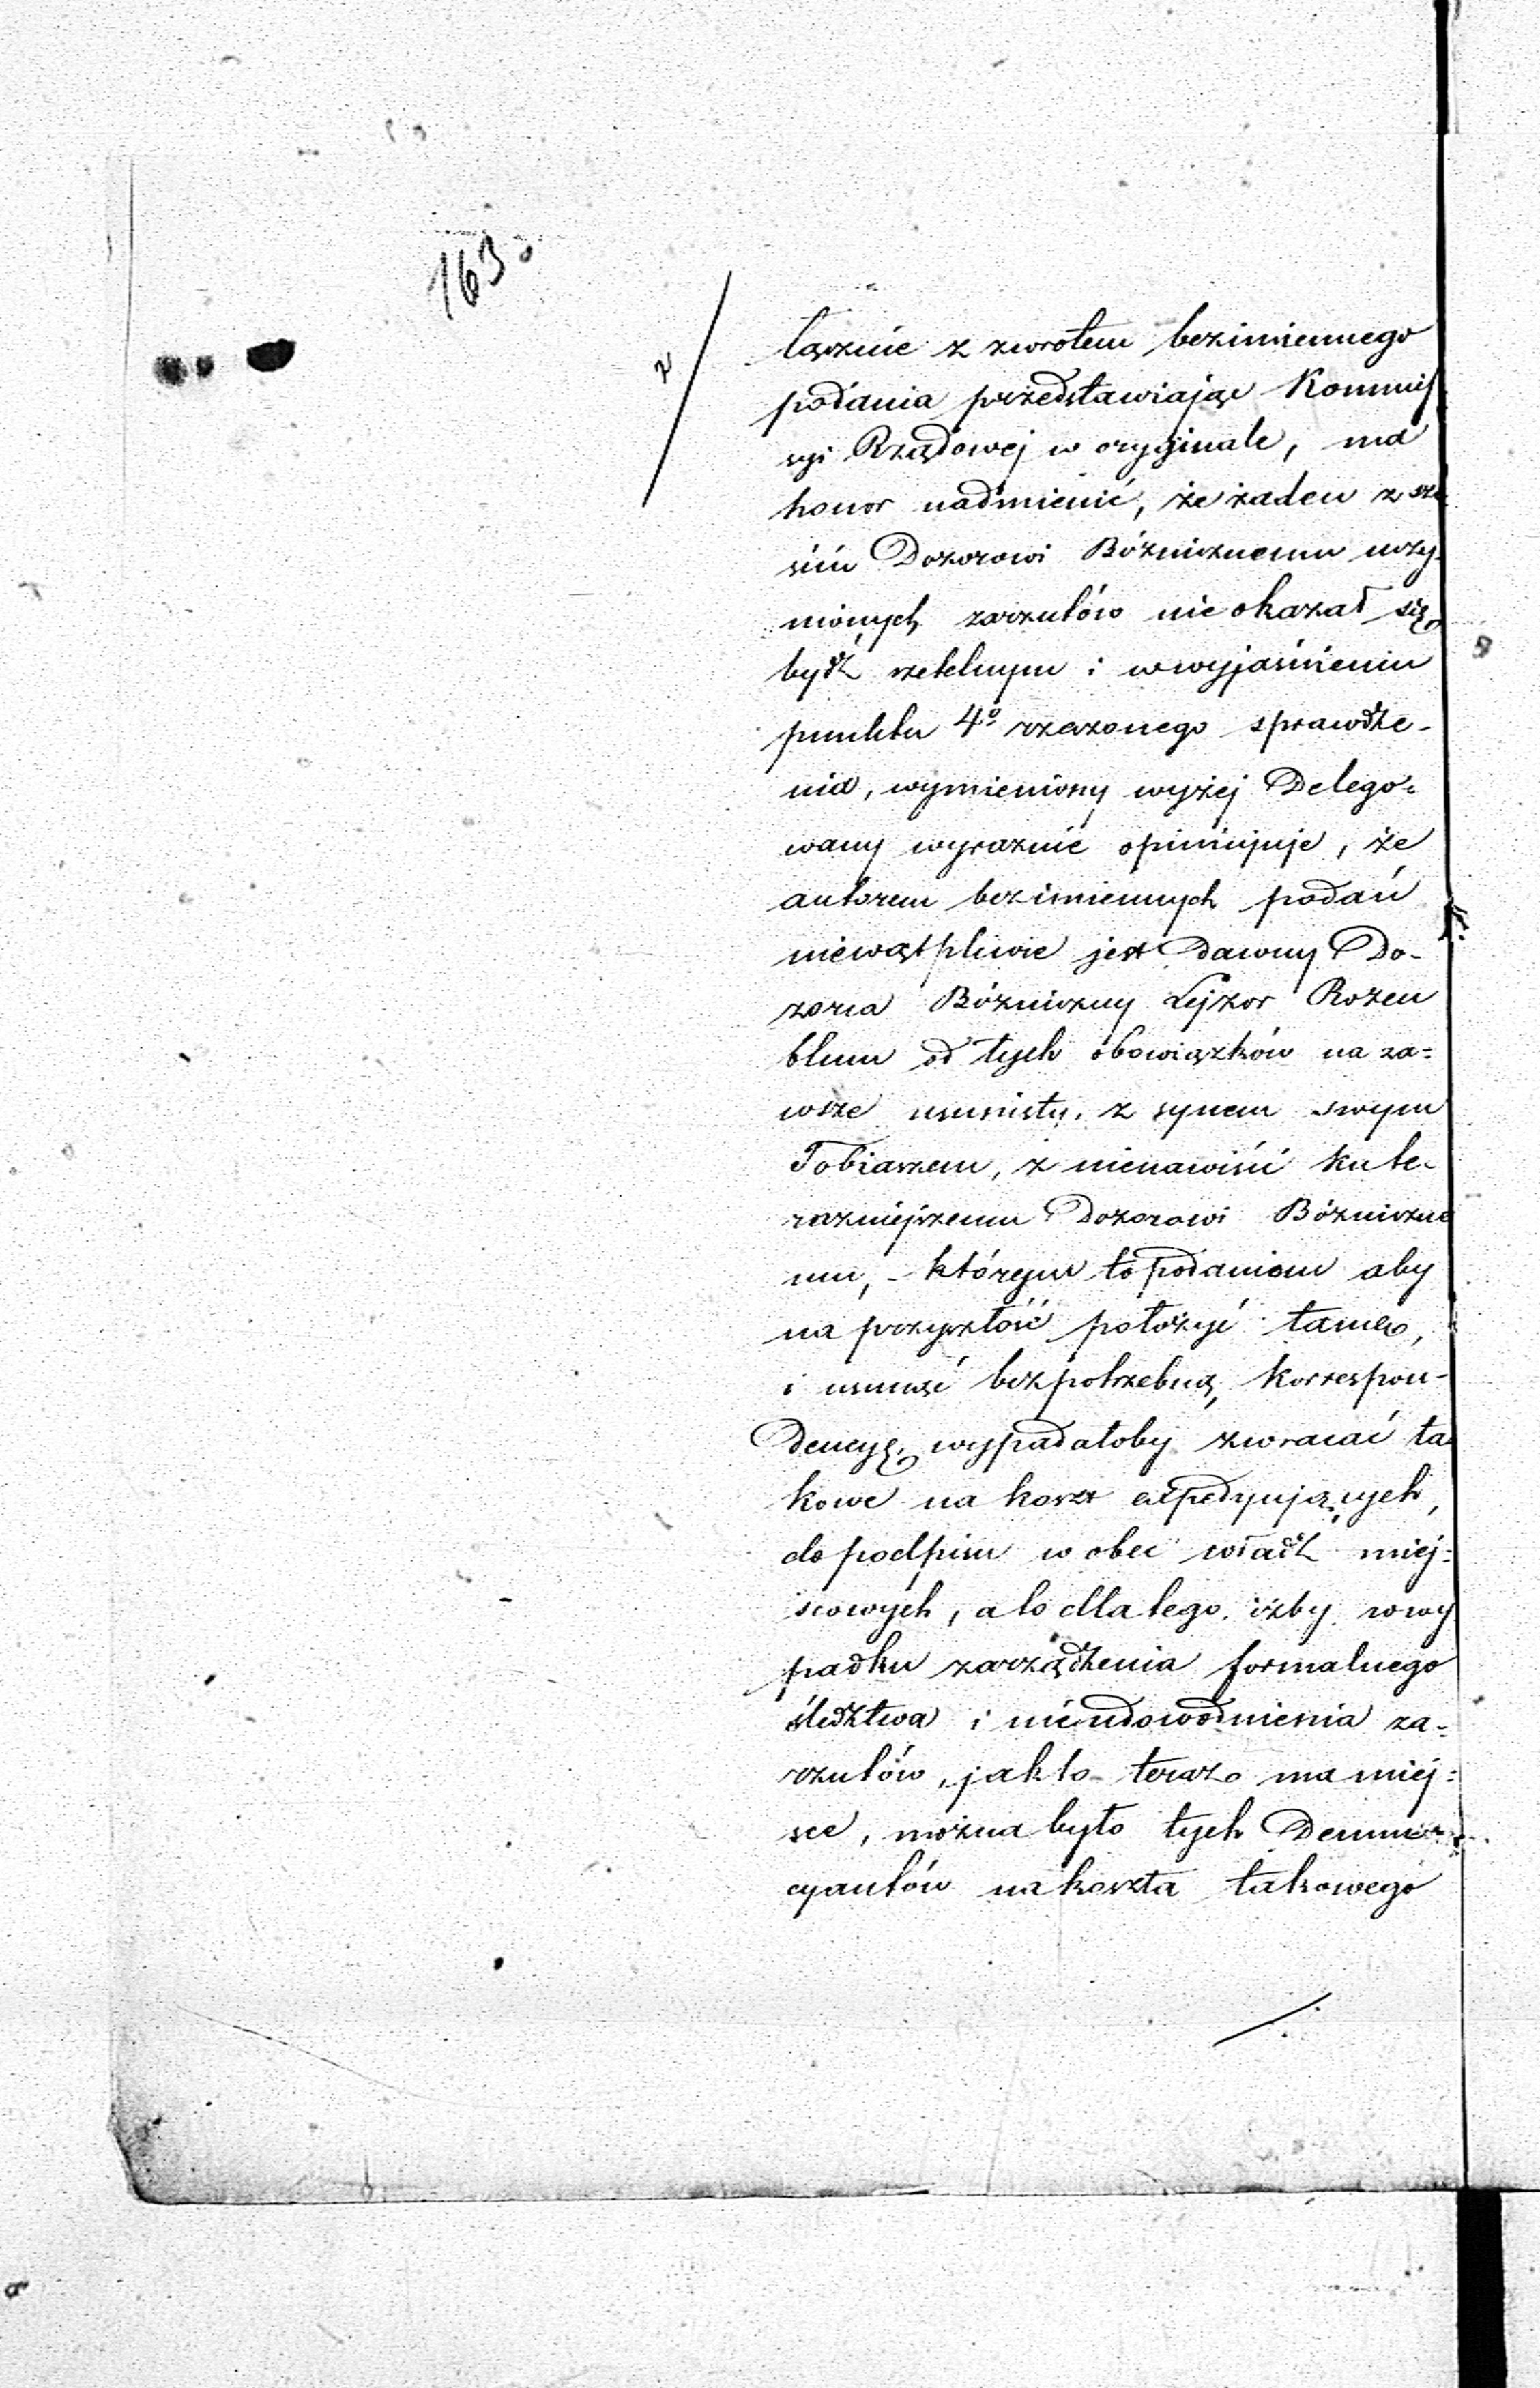 163
2
łącznie z zwrotem bezimiennego
podania przedstawiając Kommis
syi Rządowej w oryginale, ma
honor nadmienić, że żaden z sze
ściu Dozorowi Bóżniczemu uczy-
nionych zarzutów nie okazał się
bydź rzetelnym i w wyjaśnieniu
punktu 4º rzeczonego sprawdze-
nia, wymieniony wyżej Delego-
wany wyraznie opiniujuje, że
autorem bezimiennych podań
niewątpliwie jest dawny Do-
zorca Bóżniczny Lejzor Rozen
blum od tych obowiązków na za-
wsze usunięty. z synem swym
Tobiaszem, z nienawiści ku te-
razniejszemu Dozorowi Bóżniczne
mu, - którym to podaniom aby
na przyszłość położyć tamę,
i usunąć bezpotrzebną korrespon-
dencyę, wypadałoby zwracać ta
kowe na koszt expedyujących,
do podpisu w obec władz miej-
scowych, a to dla tego. iżby w wy
padku zarządzenia formalnego
śledztwa i nieudowodnienia za-
rzutów, jak to teraz ma miej-
sce, można było tych Denun-
cyantów na koszta takowego